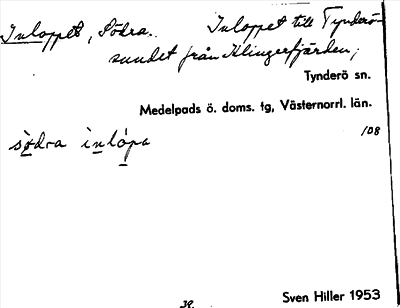 Inloppet, Södra. Inloppet till Tynderö-
sundet från Klingerfjärden,
Tynderö sn.
Medelpads ö. doms. tg, Västernorrl. län.
108
sö̱dra ìṉlópa̱
39.
Sven Hiller 1953